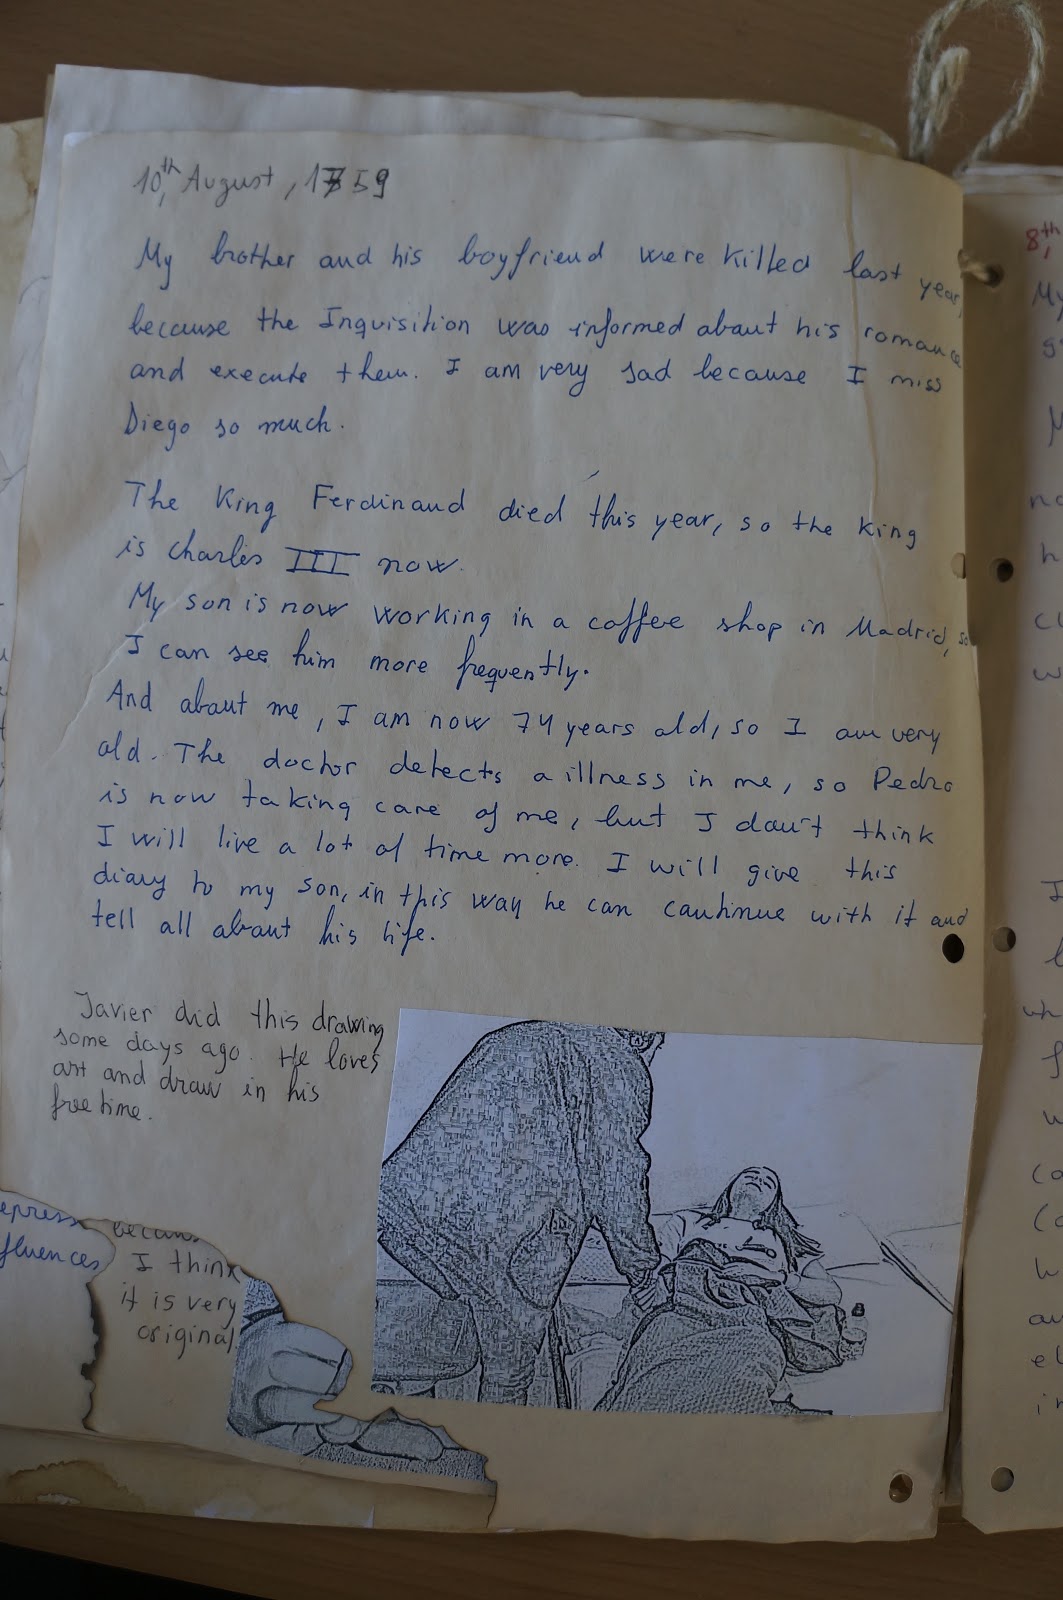 10th, August, 1759
My brother and his boyfriend were killed last year,
because the Inquisition was informed about his romance
and execute them. I am very sad because I miss
Diego so much.
The King Ferdinand died this year, so the king
is Charles III now.
My son is now working in a coffee shop in Madrid, so
I can see him more frequently.
And about me, I am now 74 years old, so I am very
old. The doctor detects a illness in me, so Pedro
is now taking care of me, but I don't think
I will live a lot of time more. I will give this
diary to my son, in this way he can continue with it and
tell all about his life.
Javier did this drawing
some days ago. He loves
art and draw in his
free time.
epress
fluences
becaus
I think
it is very
original
8th,
My